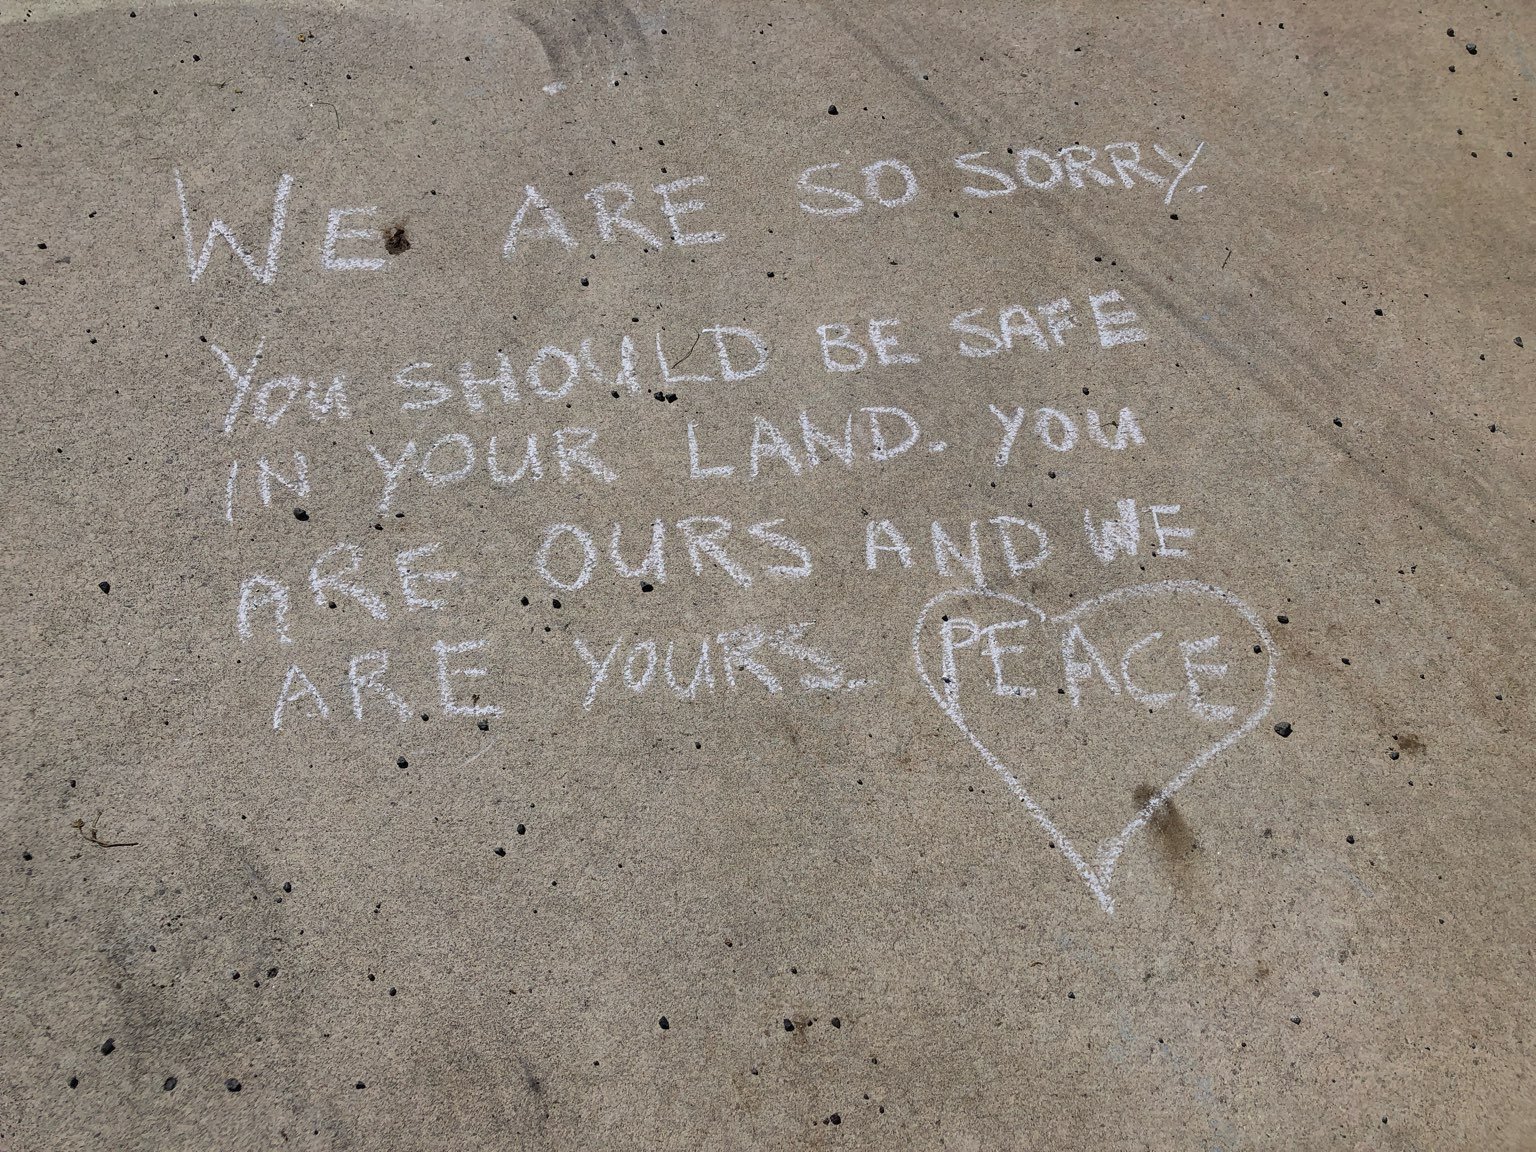 WE ARE SO SORRY.
YOU SHOULD BE SAFE
IN YOUR LAND. YOU
ARE OURS AND WE
ARE YOURS.
PEACE